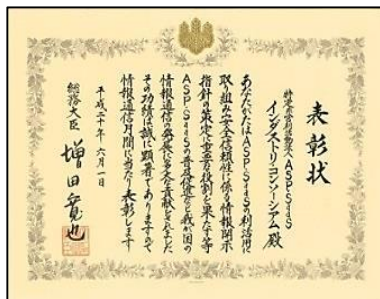 表彰状
特定非営利活動法人ASP・SaaS
インダストリ・コンソーシアム 殿
あなたがたはASP・SaaSの利活用に
取り組み安全信頼性に係る情報開示
指針の策定に重要な役割を果たす等
ASP・SaaSの普及促進など我が国の
情報通信の発展に多大な貢献をされました
その功績は誠に顕著でありますので
情報通信月間に当たり表彰します
平成二十年六月一日
総務大臣 増田寛也